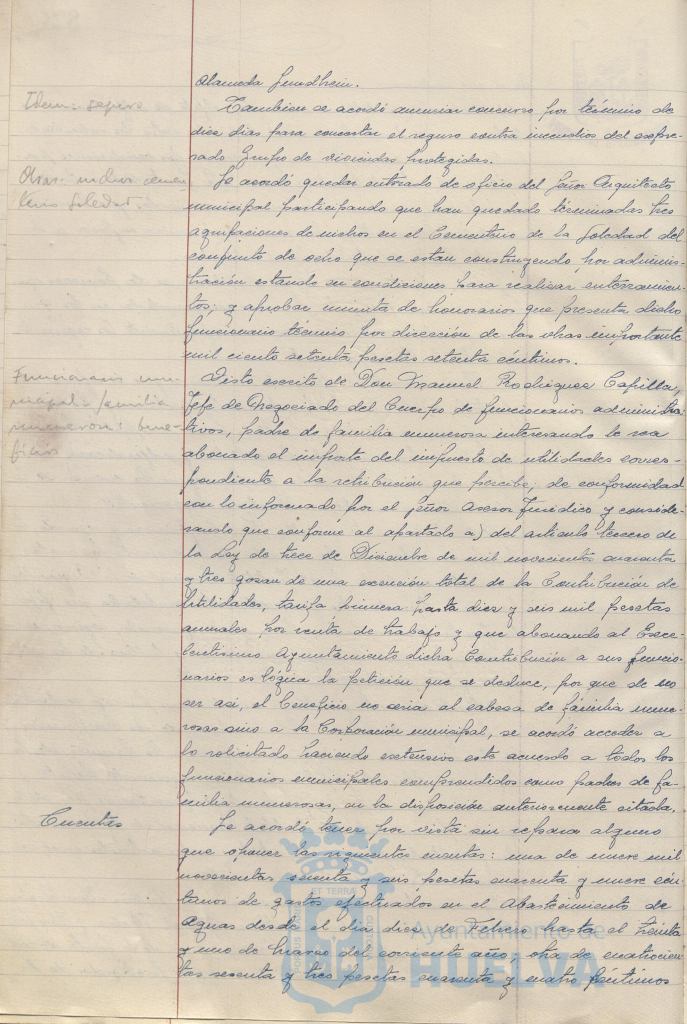 Alameda Sundheim.
Idem: seguro
Tambien se acordó anunciar concurso por término de
diez dias para concertar el seguro contra incendios del expre-
sado Grupo de viviendas protegidas.
Obras: nichos cemen
terio Soledad.
Se acordó quedar enterado de oficio del Señor Arquitecto
municipal participando que han quedado terminadas tres
agrupaciones de nichos en el Cementerio de la Soledad del
conjunto de ocho que se estan construyendo por adminis-
tración estando en condiciones para realizar enterramien-
tos; y aprobar minuta de honorarios que presenta dicho
funcionario técnico por dirección de las obras importante
mil ciento setenta pesetas setenta céntimos.
Funcionario mu-
nicipal: familia
numerosa: bene-
ficios
Visto escrito de Don Manuel Rodriguez Capilla,
Jefe de Negociado del Cuerpo de funcionarios administra-
tivos, padre de familia numerosa interesando le sea
abonado el importe del impuesto de utilidades corres-
pondiente a la retribución que percibe; de conformidad
con lo informado por el señor Asesor Juridico y conside-
rando que conforme al apartado a) del articulo tercero de
la Ley de trece de Diciembre de mil novecientos cuarenta
y tres gozan de una exención total de la Contribución de
Utilidades, tarifa primera hasta diez y seis mil pesetas
anuales por renta de trabajo y que abonando el Exce-
lentisimo Ayuntamiento dicha Contribución a sus funcio-
narios es lógica la petición que se deduce, por que de no
ser asi, el beneficio no seria al cabeza de familia nume-
rosa sino a la Corporación municipal, se acordó acceder a
lo solicitado haciendo extensivo este acuerdo a todos los
funcionarios municipales comprendidos como padres de fa-
milia numerosas, en la disposición anteriormente citada.
Cuentas
Se acordó tener por vista sin reparo alguno
que oponer las siguientes cuentas: una de nueve mil
novecientas sesenta y seis pesetas cuarenta y nueve cén-
timos de gastos efectuados en el Abastecimiento de
Aguas desde el dia diez de Febrero hasta el treinta
y uno de Marzo del corriente año; otra de cuatrocien
tas sesenta y tres pesetas cuarenta y cuatro céntimos
Ayuntamiento de
HUELVA